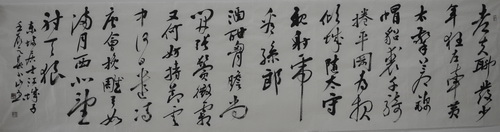 老夫聊發少
年狂左牽黃
右擎蒼錦
帽貂裘千騎
捲平岡為報
傾城隨太守
親射虎
看孫郎
酒酣胸膽尚
開張鬢微霜
又何妨持節雲
中何日遣馮
唐會挽雕弓如
滿月西北望
射天狼
東坡居士江城子